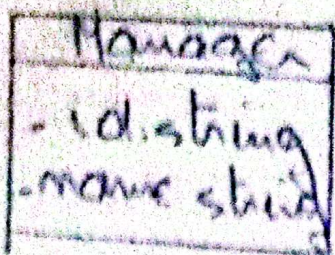 Manager
- id.string
- name string